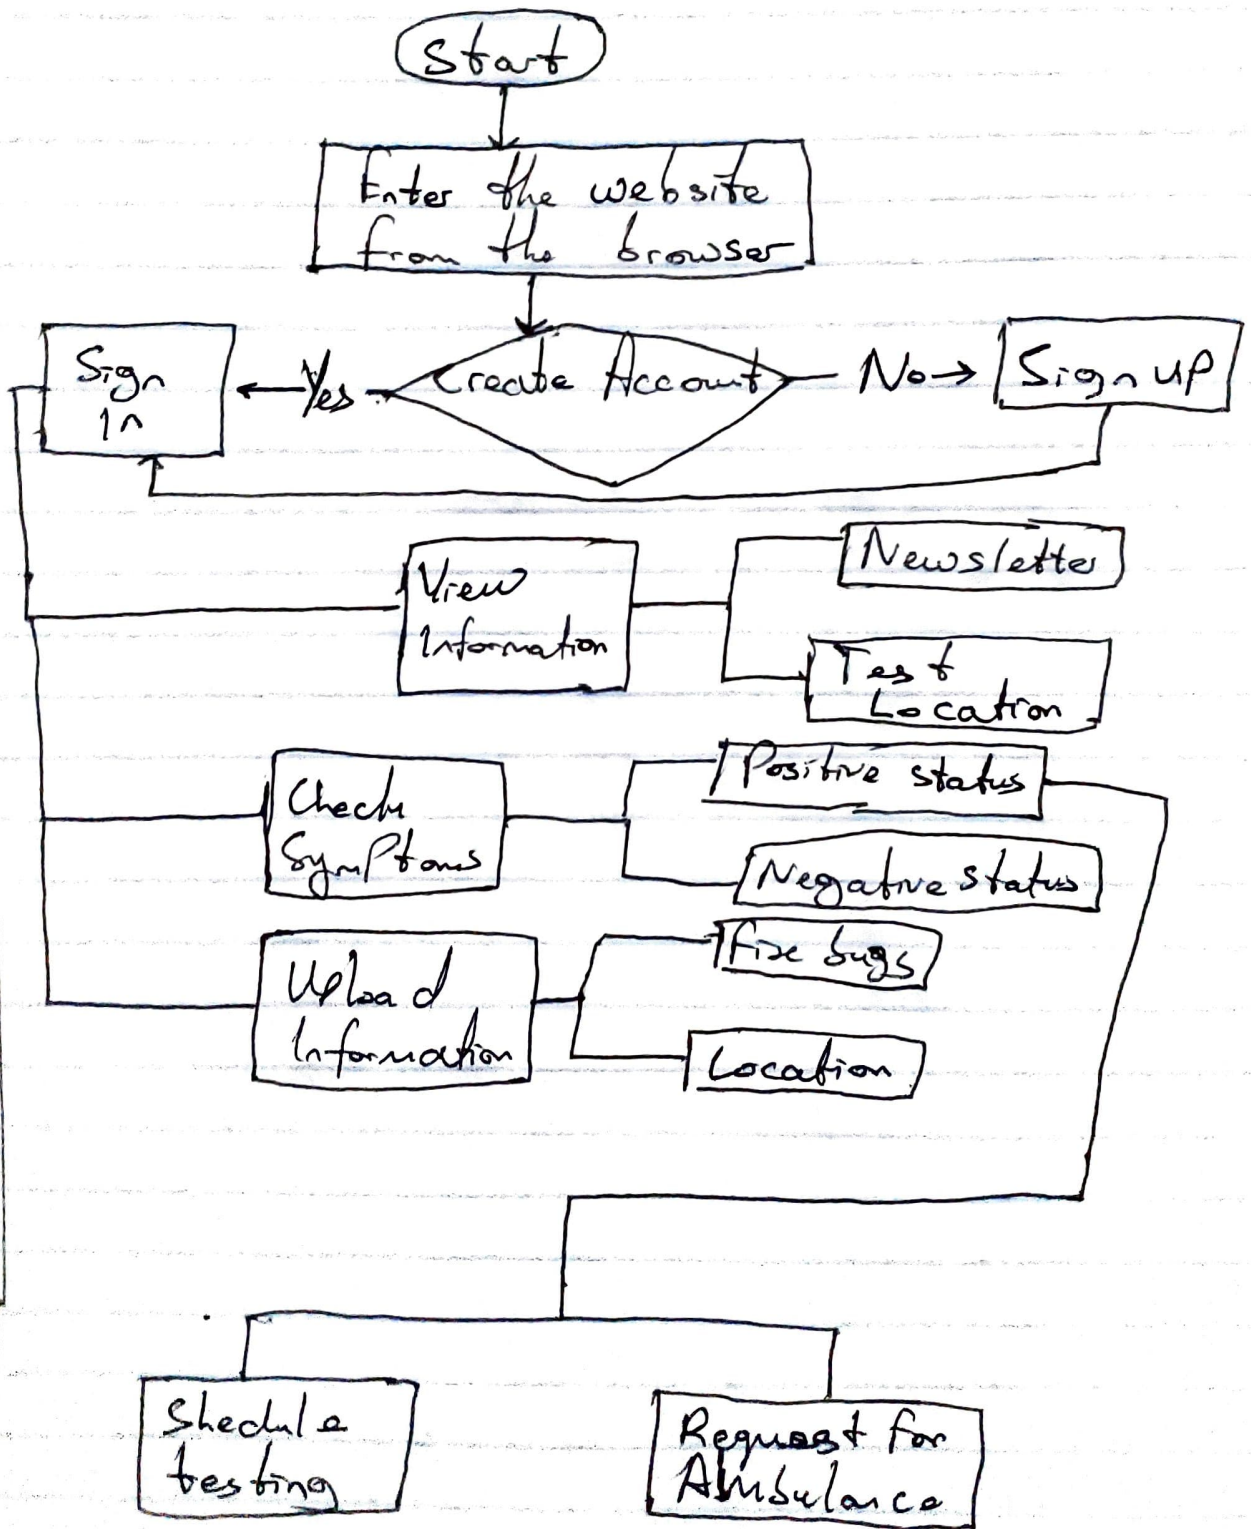 Start
Enter the website
from the browser
Sign
In
Yes
Create Account
No
Sign up
View
Information
Newsletter
Test
Location
Check
Symptoms
Positive status
Negative status
Upload
Information
Fix bugs
Location
Shedule
testing
Request for
Ambulance